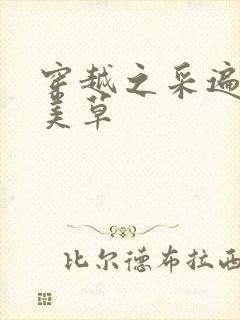 穿越之采遍
美草
比尔德布拉西